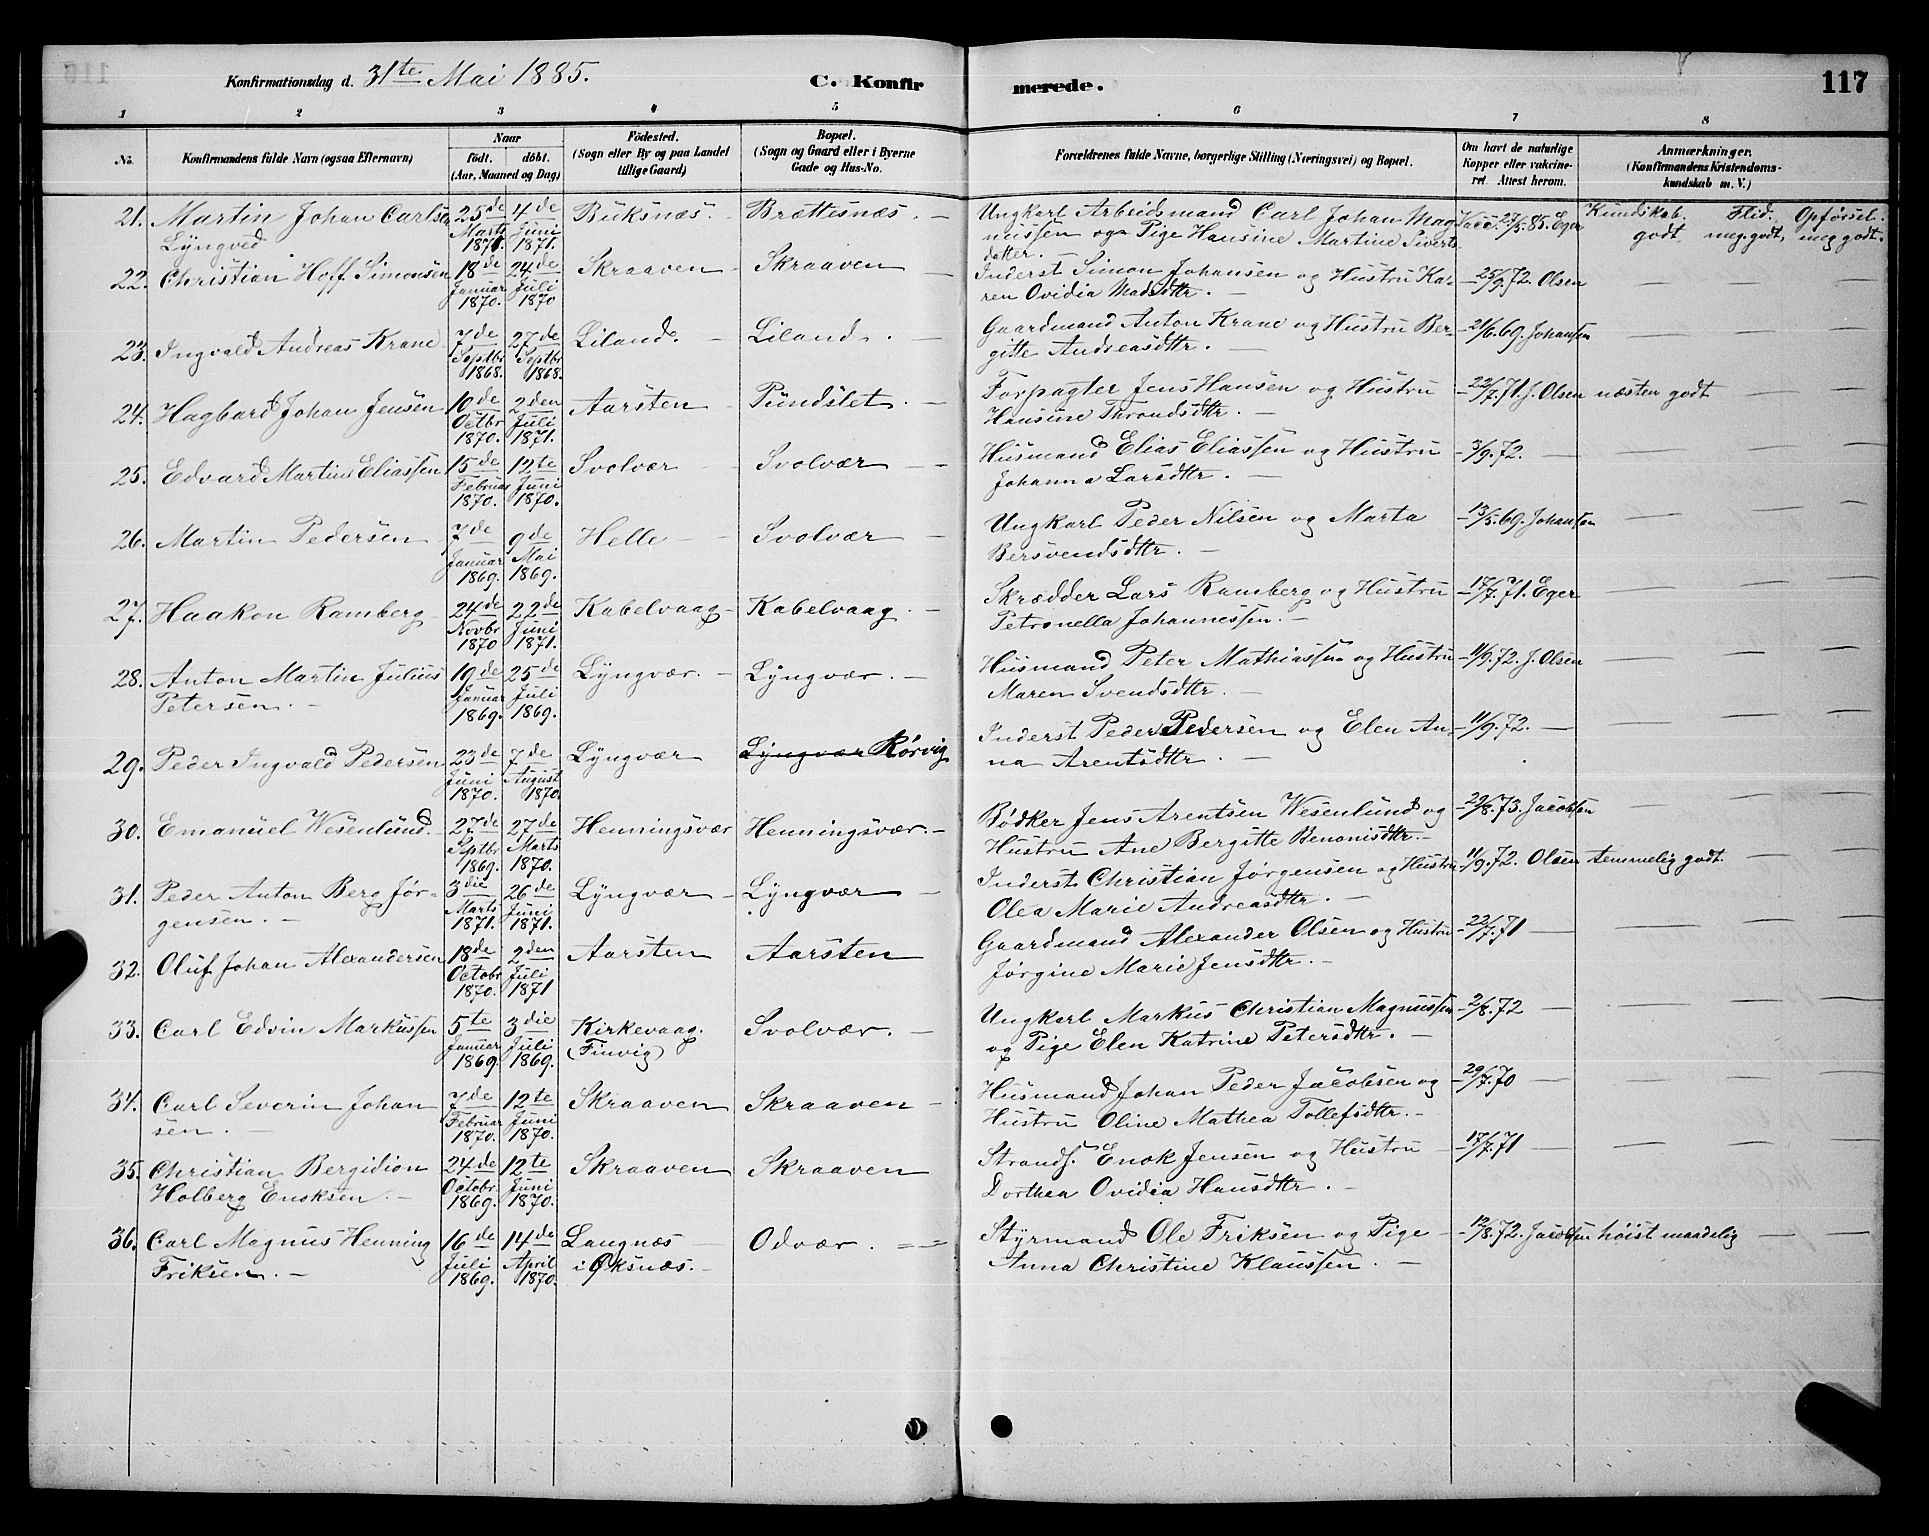 Konfirmationsdag d. 31te Mai 1885. C. Konfirmerede. 117
1 2 3 4 5 6 7 8
No. Konfirmandens fulde Navn (ogsaa Efternavn) Naar født. døbt. (Aar, Maaned og Dag) Fødested. (Sogn eller By og paa Landet tillige Gaard) Bopæl. (Sogn og Gaard eller i Byerne Gade og Hus-No. Forældrenes fulde Navne, borgerlige Stilling (Næringsvei) og Bopæl. Om havt de naturlige Kopper eller vakcineret. Attest herom. Anmærkninger. (Konfirmandens Kristendomskundskab m. V.)
Kundskab. Flid. Opførsel.
21. Martin Johan Carlsen Lyngved 25de Marts 1871. 4de Juni 1871. Buksnæs. Brættesnæs. — Ungkarl Arbeidsmand Carl Johan Magnussen og Pige Hansine Martine Sivertsdatter. — Vacc. 27/5.85. Eger godt meg. godt, meg godt.
22. Christian Hoff Simonsen 18de Januar 1870. 24de Juli 1870 Skraaven - Skraaven — Inderst Simon Johansen og Hustru Karen Ovidia Madsdttr. — — 25/9.72. Olsen — — —
23. Ingvald Andreas Krane 7de Septbr 1868. 27de Septbr 1868. Liland. — Liland. — Gaardmand Anton Krane og Hustru Bergitte Andreasdttr. — — 21/6.69. Johansen — — —
24. Hagbard Johan Jensen 10de Octbr 1870. 2den Juli 1871. Aarsten — Pundslet. — Forpagter Jens Hansen og Hustru Hansine Throndsdttr. — — 22/7.71. J. Olsen næsten godt — —
25. Edvard Martin Eliassen 15de Februar 1870. 12te Juni 1870. Svolvær — Svolvær — Husmand Elias Eliassen og Hustru Johanna Larsdttr. — — 3/9.72. — — — —
26. Martin Pedersen 7de Januar 1869. 9de Mai 1869. Helle — Svolvær — Ungkarl Peder Nilsen og Marta Bersvendsdttr. — — 13/5.69. Johansen — — —
27. Haakon Ramberg 24de Novbr 1870 22de Juni 1871. Kabelvaag — Kabelvaag. — Skrædder Lars Ramberg og Hustru Petronella Johannessen. — — 17/7.71. Eger — — —
28. Anton Martin Julius Petersen. — 19de Januar 1869. 25de Juli 1869. Lyngvær. — Lyngvær. — Husmand Peter Mathiassen og Hustru Maren Svendsdttr. — — 11/9.72. J. Olsen — — —
29. Peder Ingvald Pedersen 23de Juni 1870. 7de August 1870. Lyngvær Lyngvær Rørvig Inderst Peder Pedersen og Elen Anna Arentsdttr. — — 11/9.72. — — — —
30. Emanuel Wesenlund. 27de Septbr 1869. 27de Marts 1870. Henningsvær Henningsvær. — Bødker Jens Arentsen Wesenlund og Hustru Ane Bergitte Benonisdttr. — — 29/8.73. Jacobsen — — —
31. Peder Anton Berg Jørgensen. — 3die Marts 1871. 26de Juni 1871. Lyngvær — Lyngvær — Inderst Christian Jørgensen og Hustru Olea Marie Andreasdttr. — — 11/9.72. Olsen temmelig godt. — —
32. Oluf Johan Alexandersen 18de Octobr 1870. 2den Juli 1871 Aarsten Aarsten Gaardmand Alexander Olsen og Hustru Jørgine Marie Jensdttr. — — 22/7.71 — — — —
33. Carl Edvin Markussen 5te Januar 1869. 3die Juli 1869. Kirkevaag. (Finvig) Svolvær. — Ungkarl Markus Christian Magnussen og Pige Elen Katrine Petersdttr. — — 2/8.72 — — — —
34. Carl Severin Johansen. — 7de Februar 1870. 12te Juni 1870. Skraaven Skraaven — Husmand Johan Peder Jacobsen og Hustru Oline Mathea Tollefsdttr. — — 29/7.70 — — — —
35. Christian Bergidion Holberg Enoksen. — 24de Octobr 1869. 12te Juni 1870. Skraaven Skraaven Strands. Enok Jensen og Hustru Dorthea Ovidia Hansdttr. — — 17/7.71 — — — —
36. Carl Magnus Henning Friksen. — 16de Juli 1869. 14de April 1870. Langnæs i Øksnæs. — Odvær. — Styrmand Ole Friksen og Pige Anna Christine Klaussen. — — 12/8.72. Jacobsen høist maadelig — —